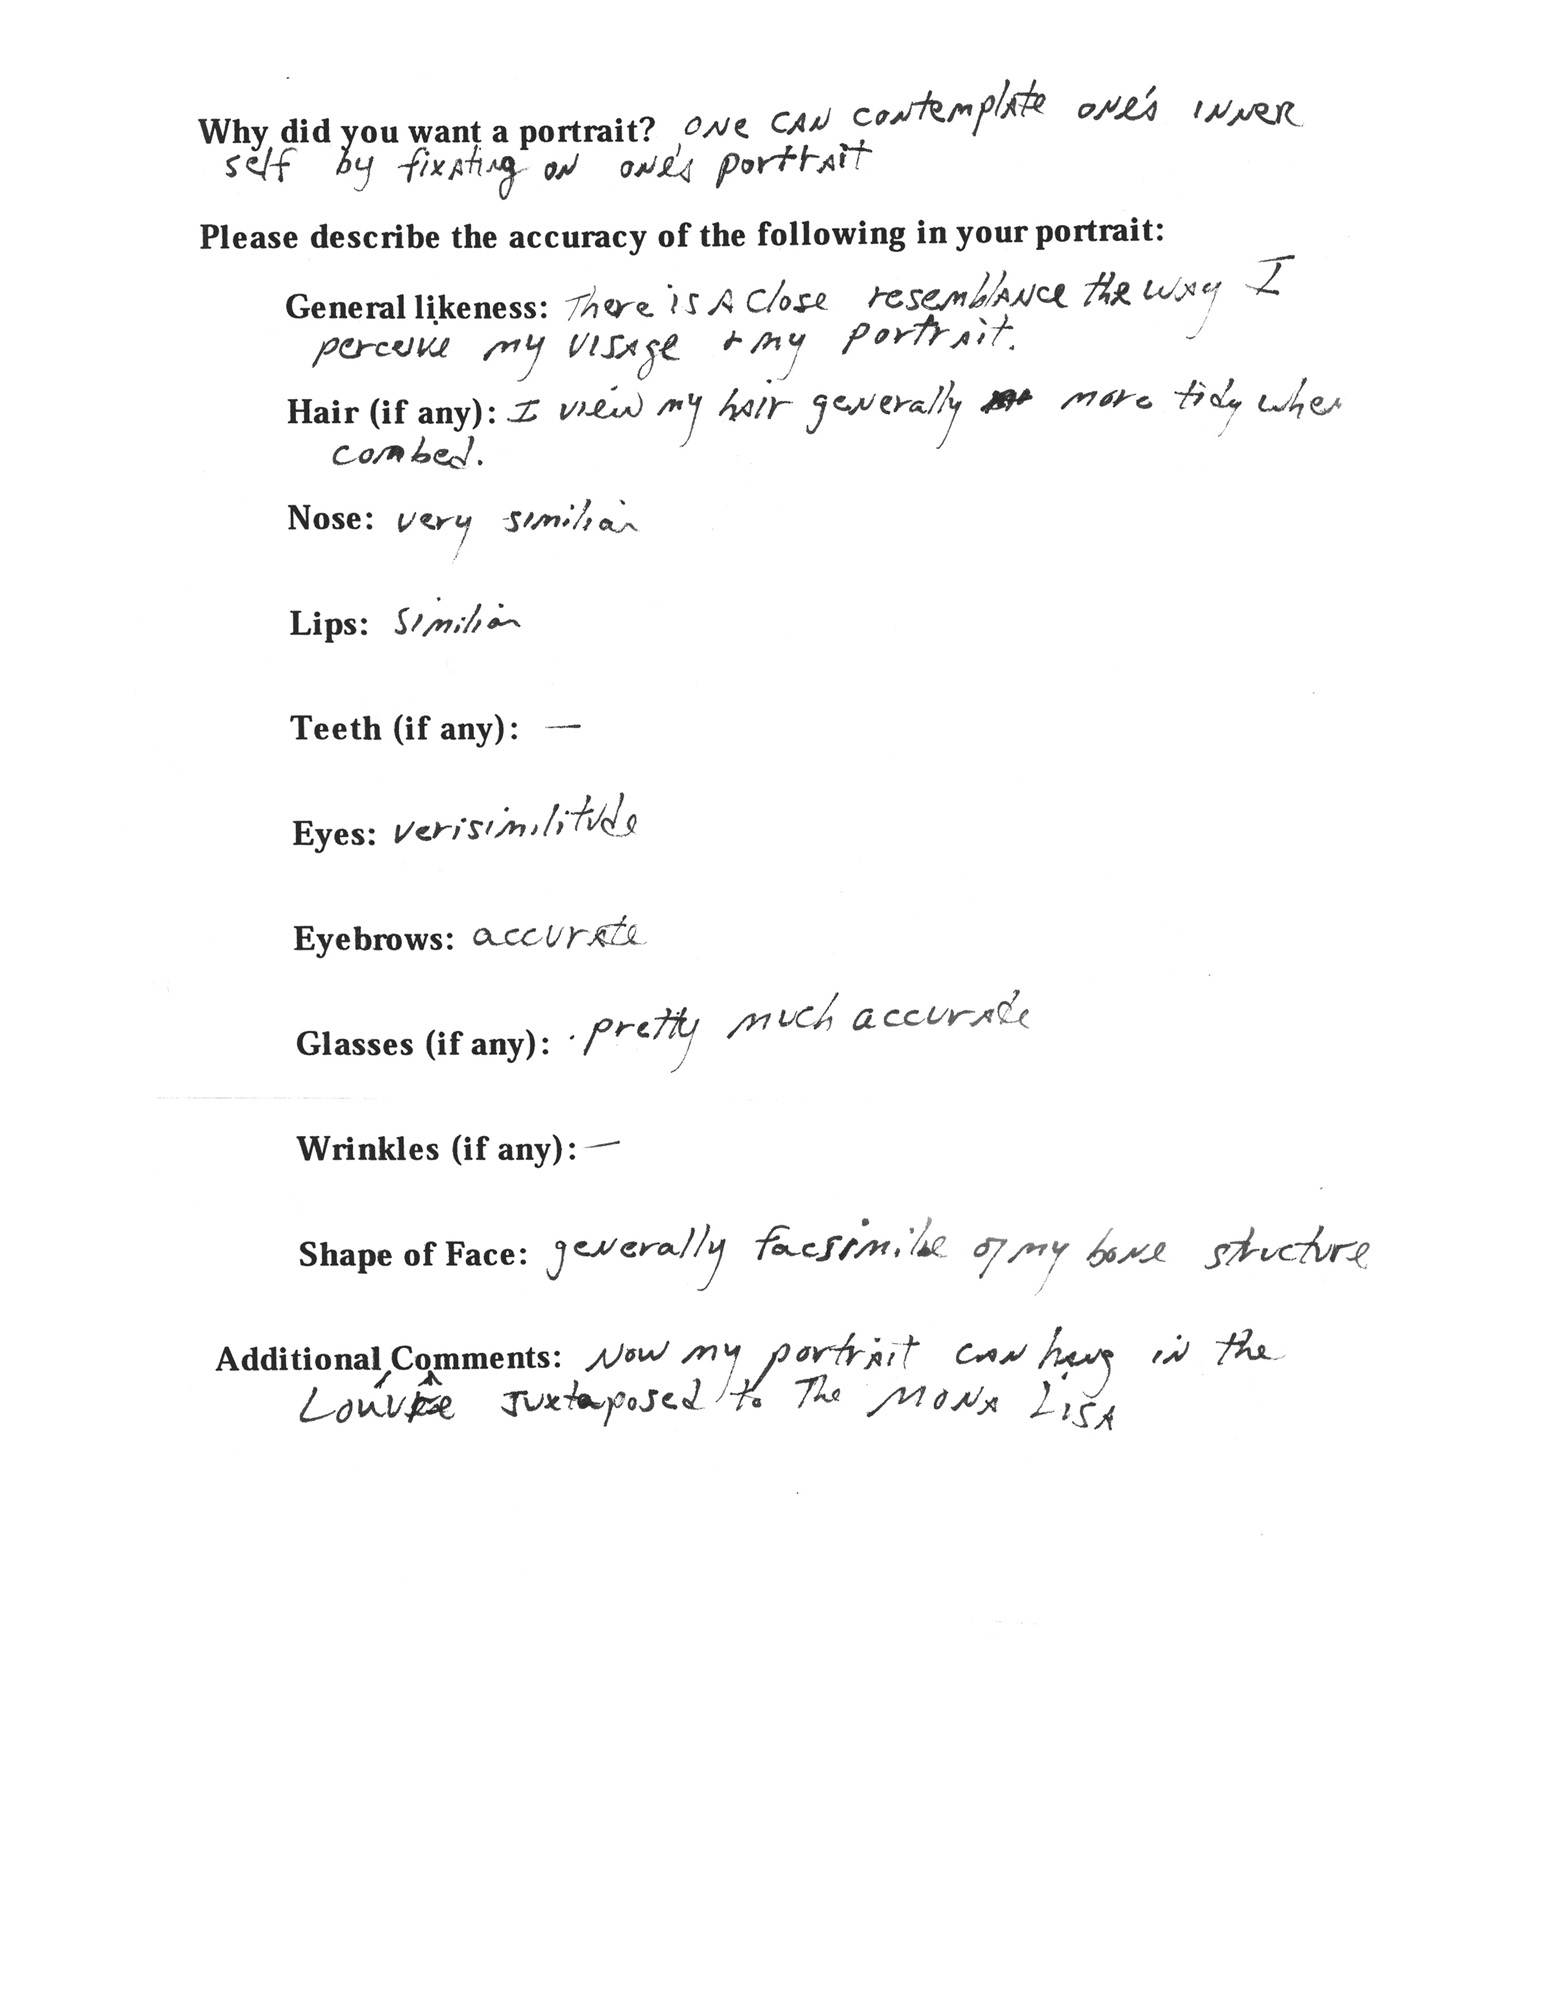 Why did you want a portrait? ONE CAN contemplate ONE'S INNER
self by fixating on one's portrait
Please describe the accuracy of the following in your portrait:
General likeness: There is A Close resemblance the way I
perceive my visage + my portrait.
Hair (if any): I view my hair generally more tidy when
combed.
Nose: very similiar
Lips: Similiar
Teeth (if any): —
Eyes: verisimilitude
Eyebrows: accurate
Glasses (if any): pretty much accurate
Wrinkles (if any): —
Shape of Face: generally facsimile of my bone structure
Additional Comments: Now my portrait can hang in the
Louvre Juxtaposed to The MONA LISA